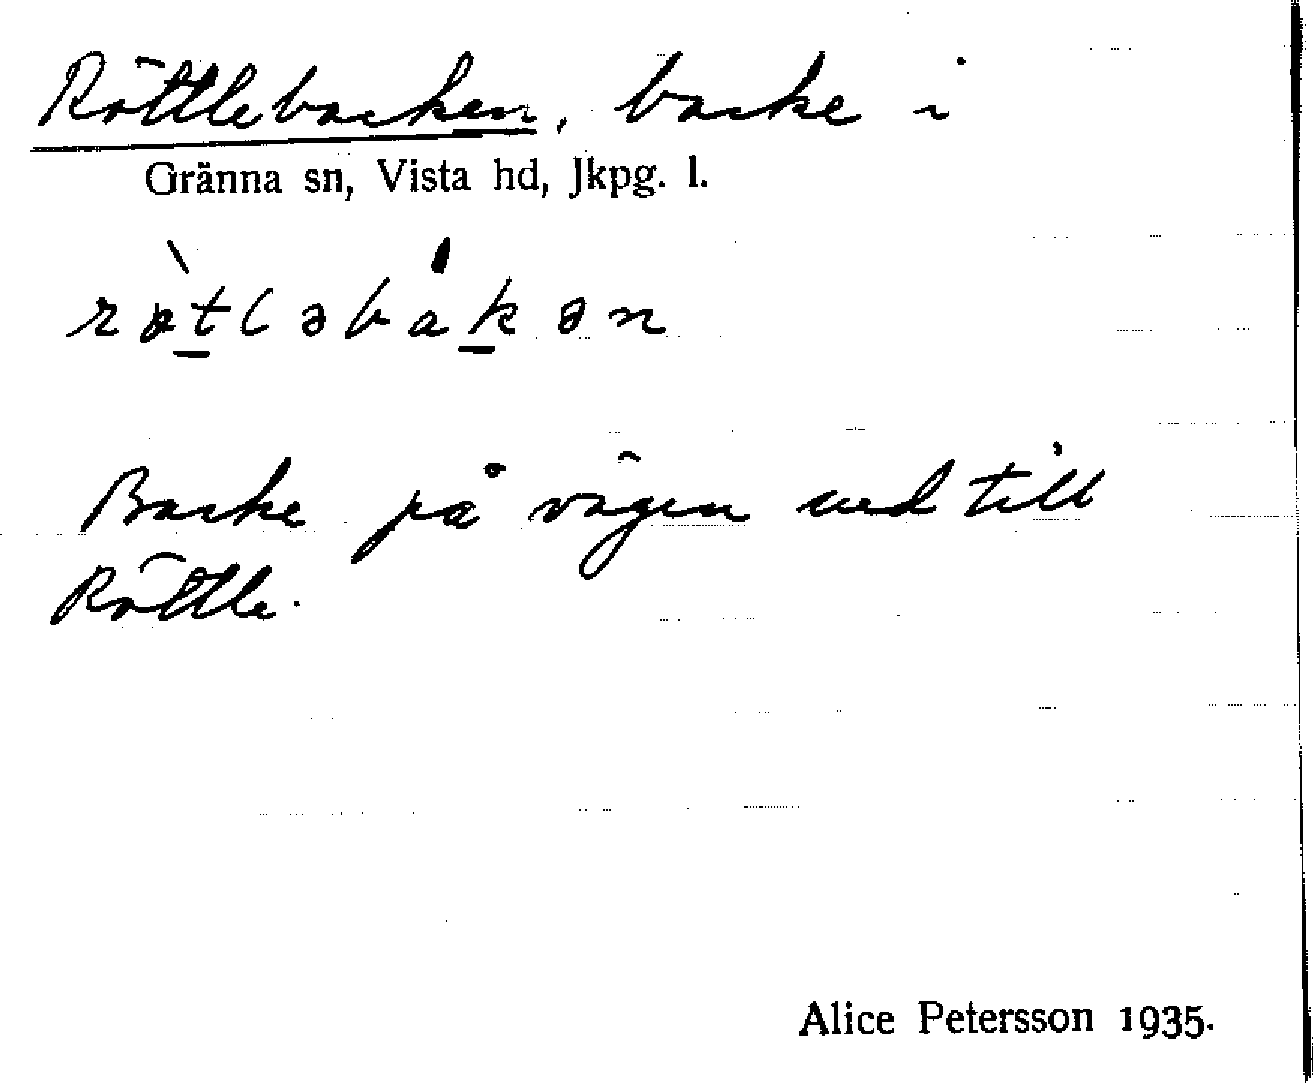 Röttlebacken, backe i
Gränna sn, Vista hd, Jkpg. l.
røtləbakən
Backe på vägen ned till
Röttle.
Alice Petersson 1935.